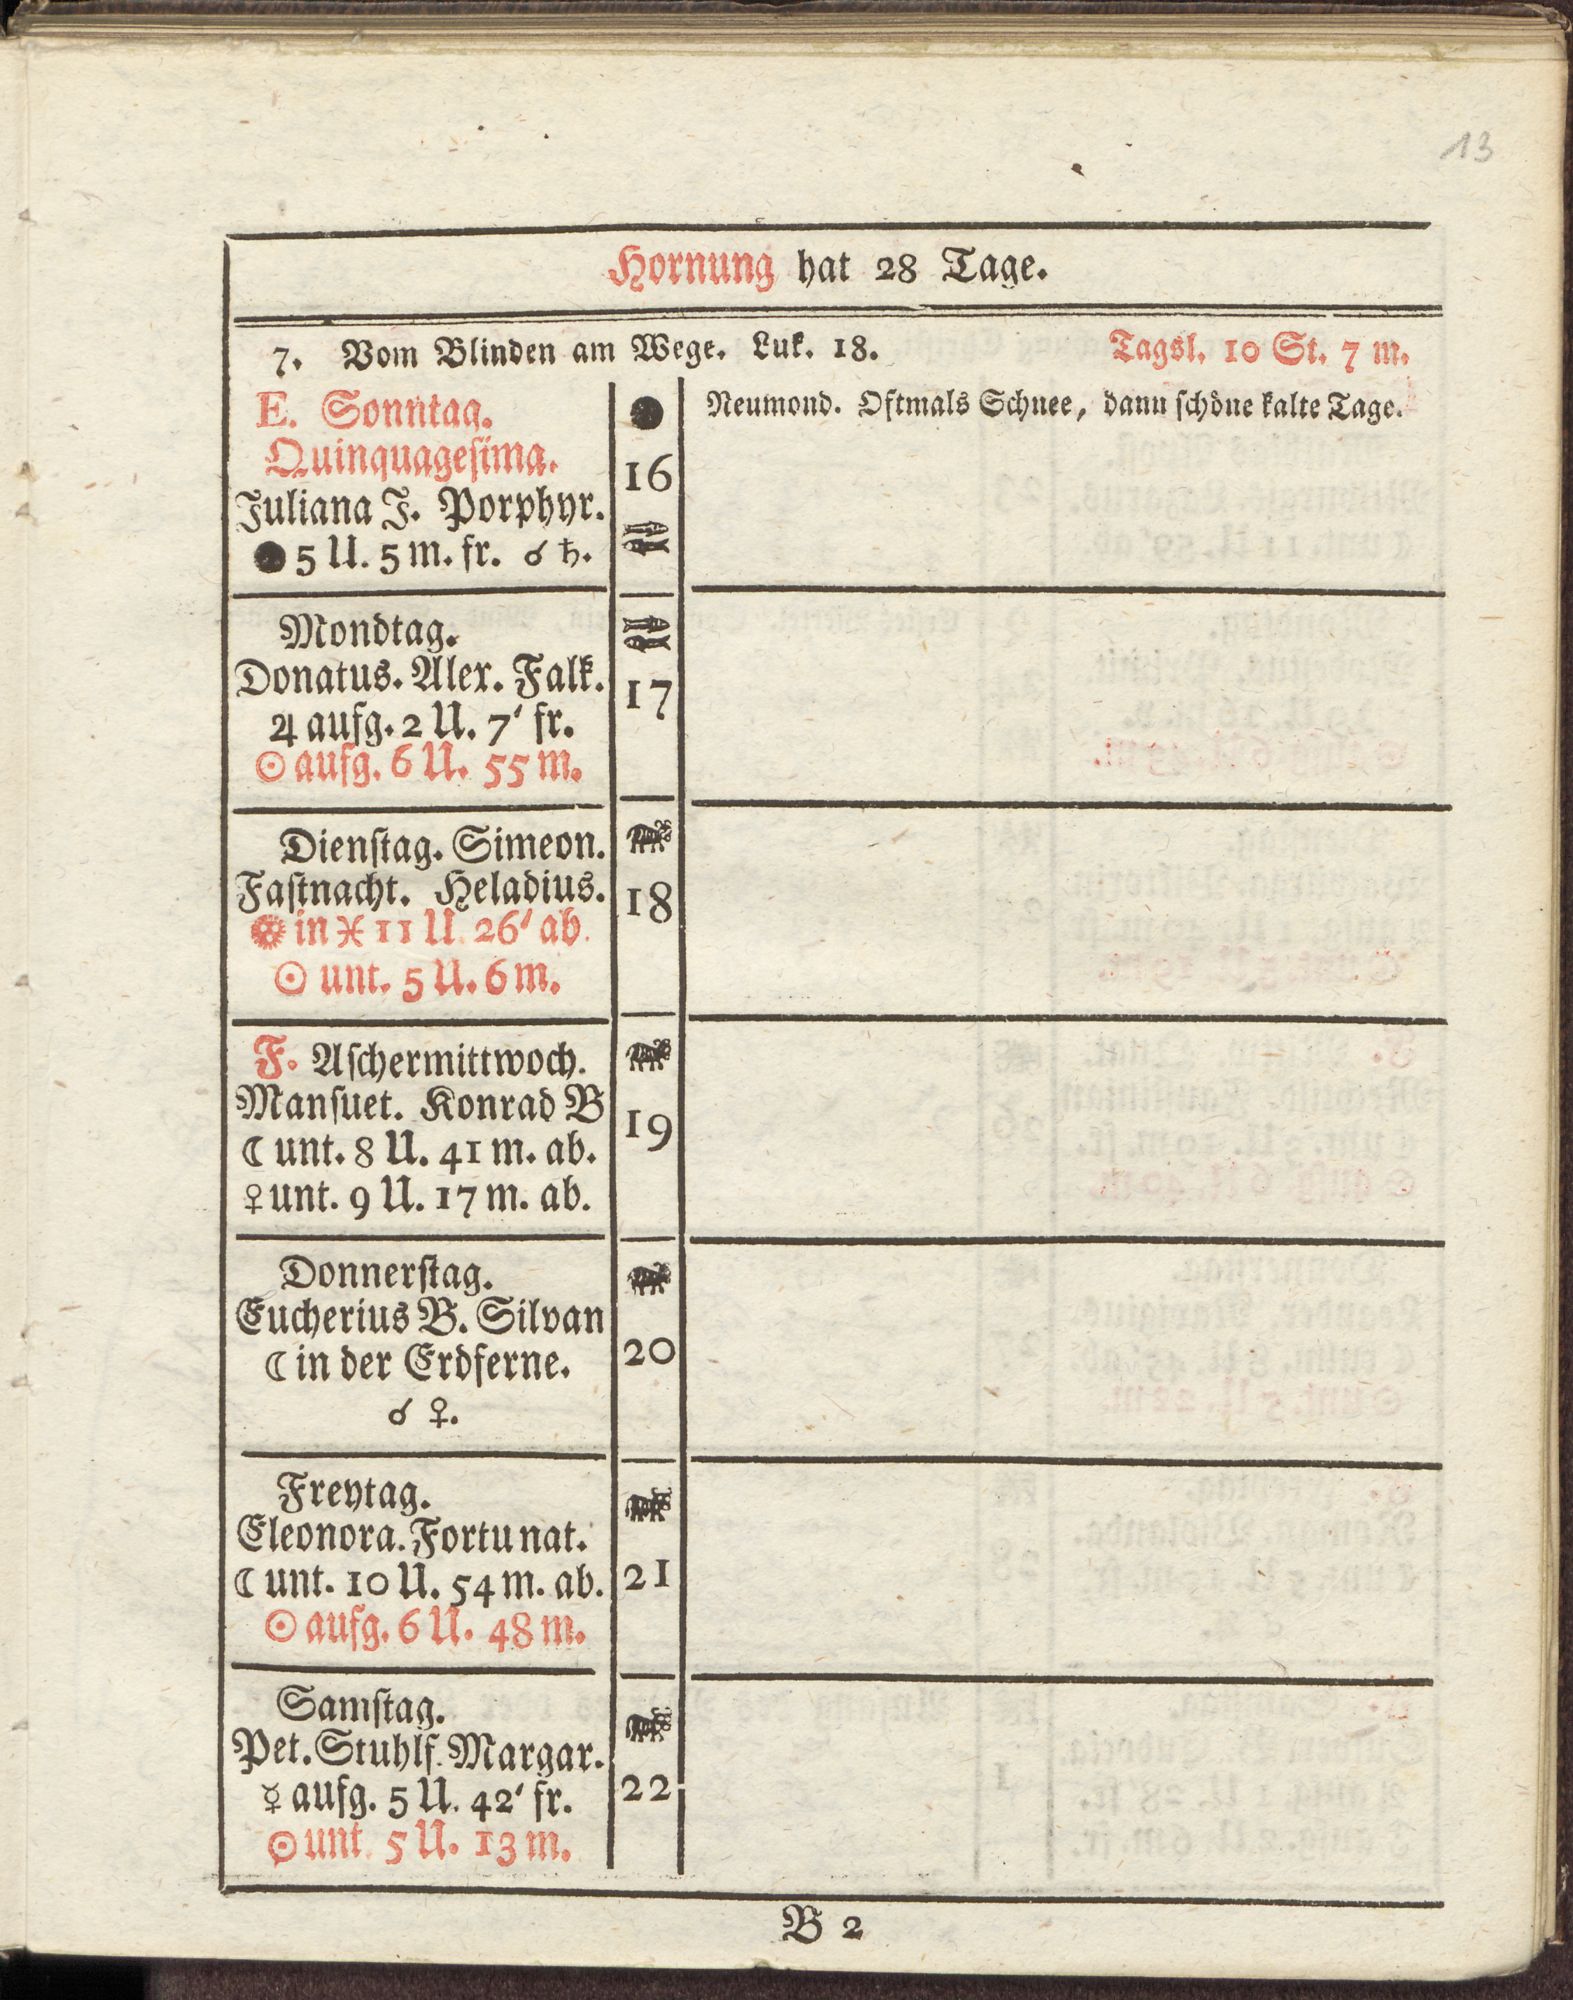 13
Hornung hat 28 Tage.
7. Vom Blinden am Wege. Luk. 18. Tagsl. 10 St. 7 m.
E. Sonntag. ● Neumond. Oftmals Schnee, dann ſchöne kalte Tage.
Quinquageſima.
16
Juliana J. Porphyr.
● 5 U. 5 m. fr. ☌ ♄.
Mondtag.
Donatus. Alex. Falk.
17
♃ aufg. 2 U. 7' fr.
☉ aufg. 6 U. 55 m.
Dienſtag. Simeon.
Faſtnacht. Heladius.
18
in ♓ 11 U. 26' ab.
☉ unt. 5 U. 6 m.
F. Aſchermittwoch.
Manſuet. Konrad B
19
☾ unt. 8 U. 41 m. ab.
♀ unt. 9 U. 17 m. ab.
Donnerſtag.
Eucherius B. Silvan
20
☾ in der Erdferne.
☌ ♀.
Freytag.
Eleonora. Fortunat.
21
☾ unt. 10 U. 54 m. ab.
☉ aufg. 6 U. 48 m.
Samſtag.
Pet. Stuhlf. Margar.
22
☿ aufg. 5 U. 42' fr.
☉ unt. 5 U. 13 m.
B 2